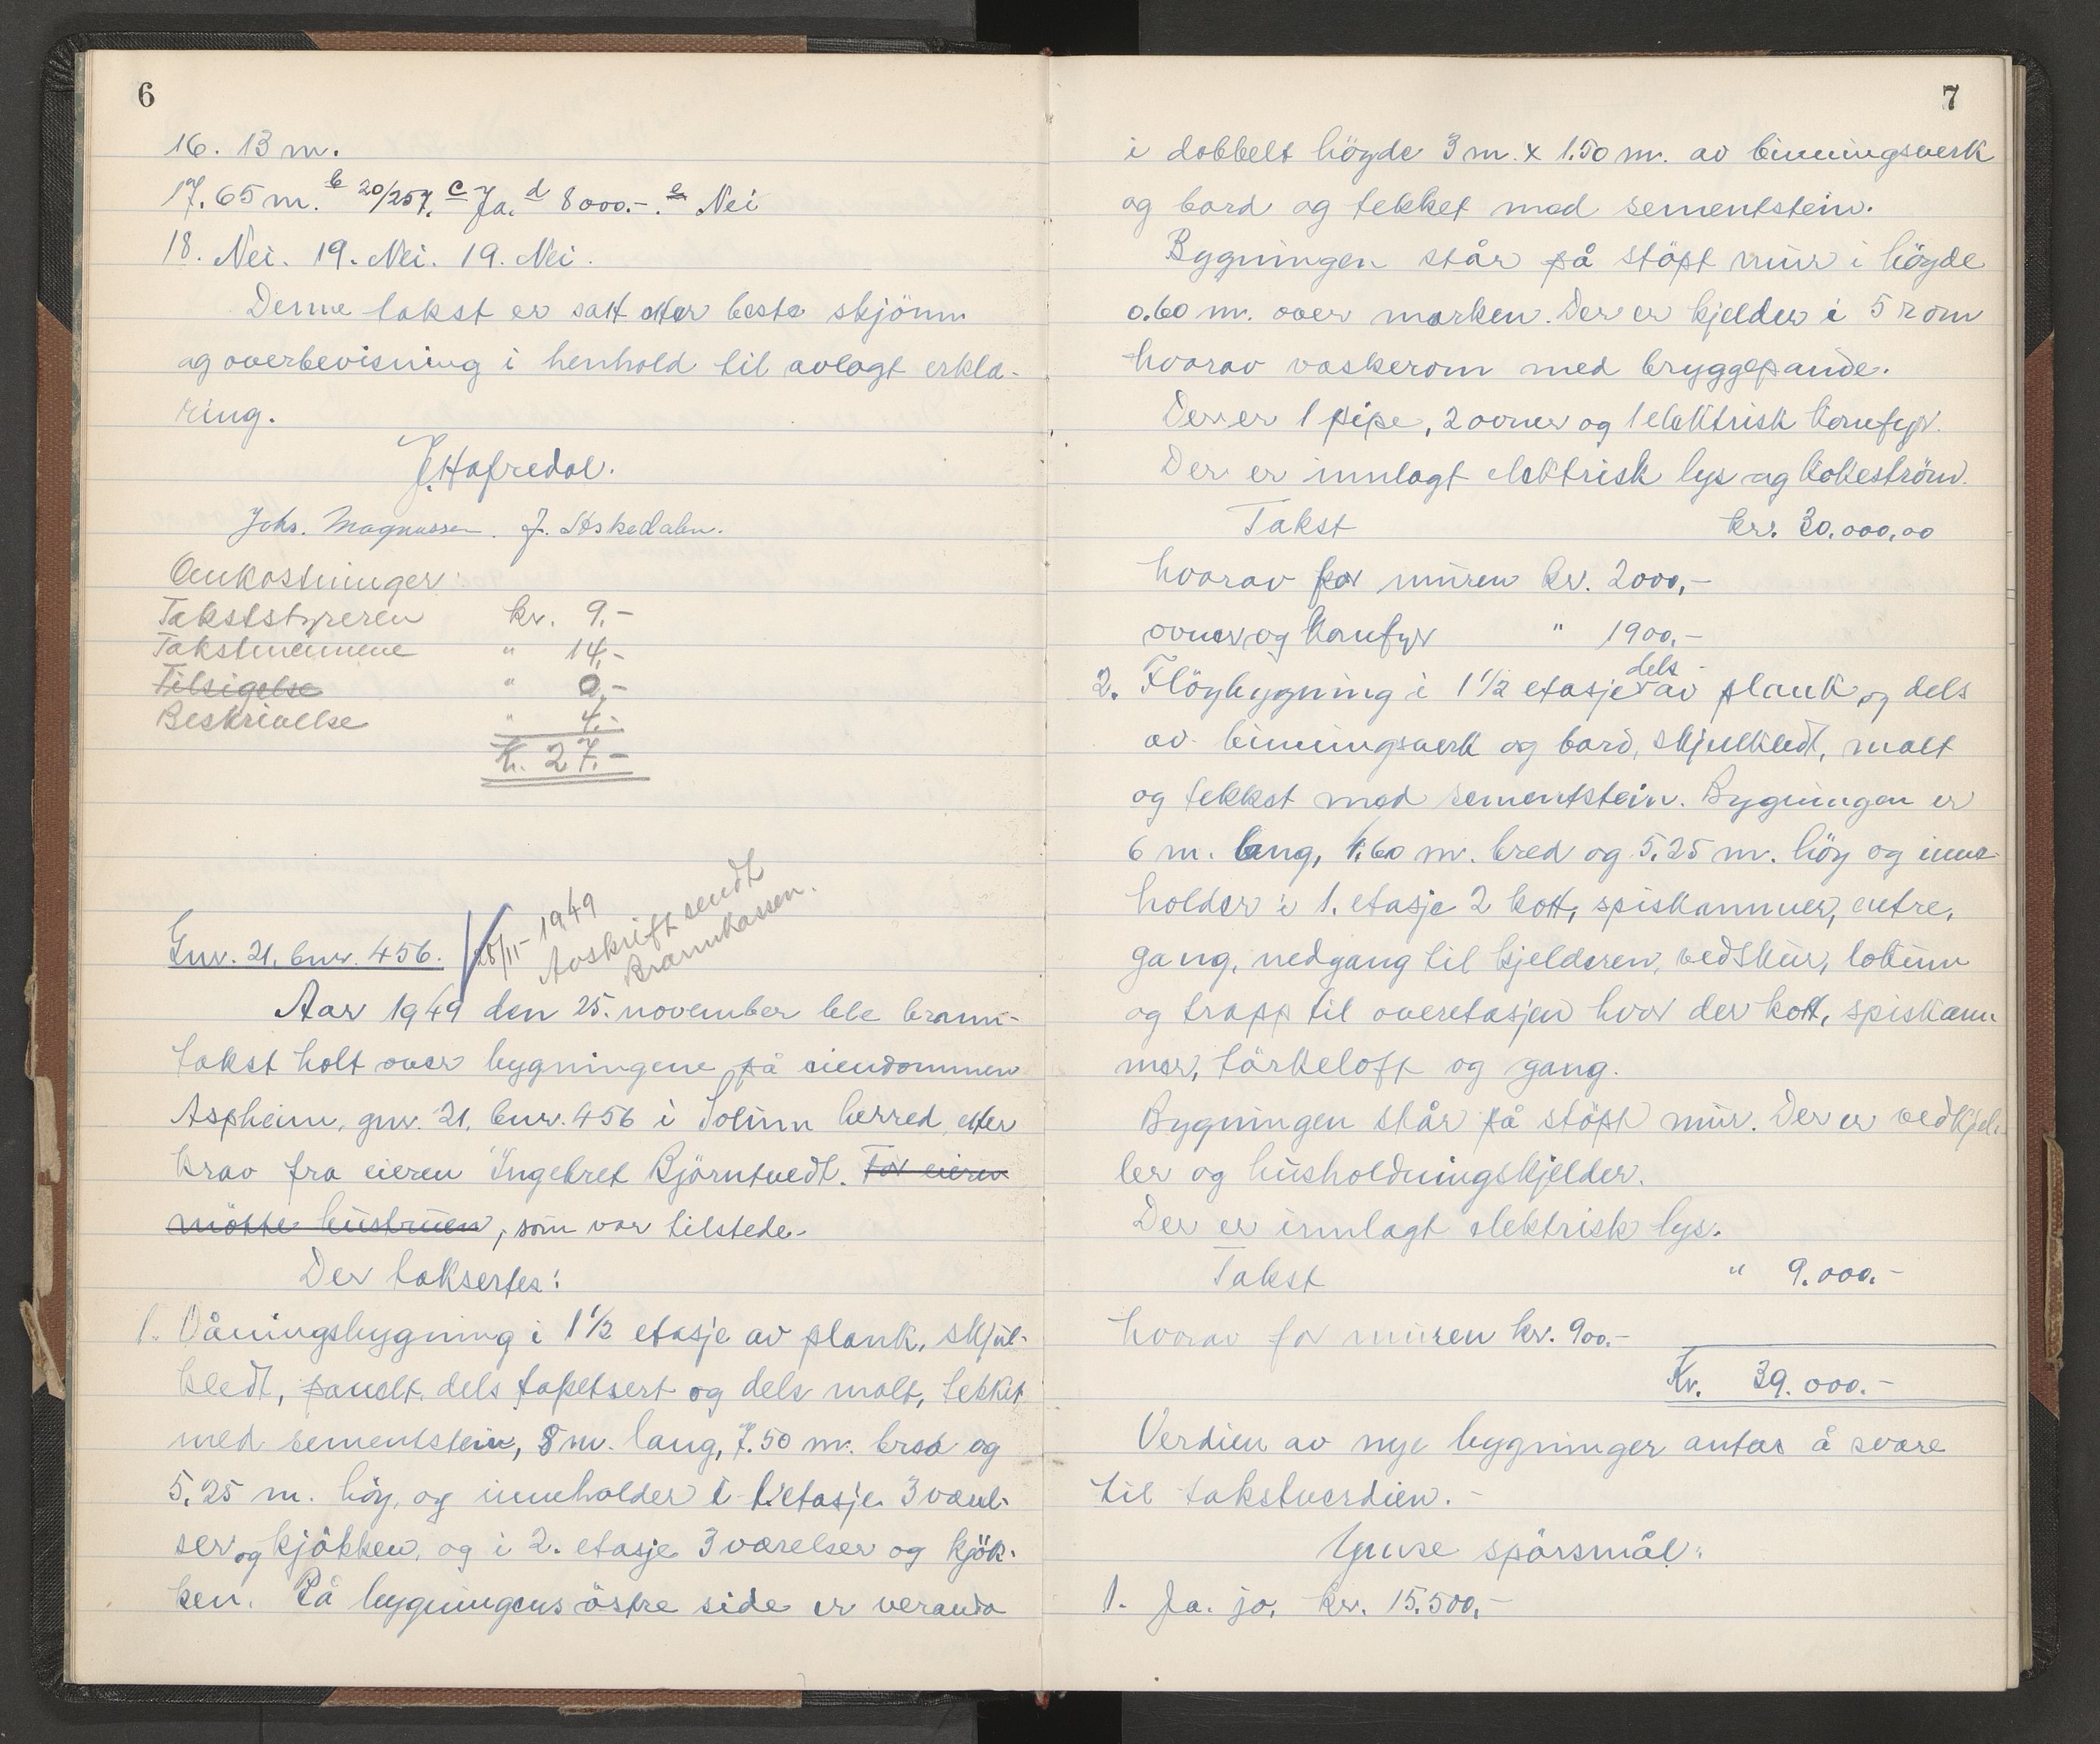 6
16. 13 m.
17. 65 m. b 20/257. c Ja. d 8000.-. e Nei
18. Nei. 19. Nei. 19. Nei.
Denne takst er satt etter beste skjönn
og overbevisning i henhold til avlagt erklæ-
ring.
J. Hafredal.
Johs. Magnussen. J.
Omkostninger:
Takststyreren kr. 9.-
Takstmennene " 14,-
Tilsigelse " 0,-
Beskrivelse " 4.-
Kr. 27.-
Gnr. 21, bnr. 456.
28/11- 1949
Avskrift sendt
Brannkassen.
Aar 1949 den 25. november ble brann-
takst holt over bygningene på eiendommen
Aspheim, gnr. 21, bnr. 456 i Solum herred, etter
krav fra eieren Ingebret Björntvedt. For eieren
mötte hustruen, som var tilstede.
Der taksertes:
1. Våningsbygning i 1 1/2 etasje av plank, skjul-
kledt, panelt, dels tapetsert og dels malt, tekket
med sementstein, 8 m. lang, 7.50 m. bred og
5.25 m. höy, og inneholder i 1. etasje 3 værel-
ser og kjökken, og i 2. etasje 3 værelser og kjök-
ken. På bygningens östre side er veranda
7
i dobbelt höyde 3 m. x 1.50 m. av binningsverk
og bord og tekket med sementstein.
Bygningen står på stöpt mur i höyde
0.60 m. over marken. Der er kjelder i 5 rom
hvorav vaskerom med bryggepande.
Der er 1 pipe, 2 ovner og 1 elektrisk komfyr.
Der er innlagt elektrisk lys og kokeström.
Takst kr. 30.000,00
hvorav for muren kr. 2000,-
ovner og komfyr " 1900,-
2. Flöybygning i 1 1/2 etasje dels av plank og dels
av binningsverk og bord, skjulkledt, malt
og tekket med sementstein. Bygningen er
6 m. lang, 4.60 m. bred og 5.25 m. höy og inne-
holder i 1. etasje 2 kott, spiskammer, entre,
gang, nedgang til kjelderen, vedskur, lokum
og trapp til overetasjen hvor der kott, spiskam
mer, törkeloft og gang.
Bygningen står på stöpt mur. Der er vedkjel-
ler og husholdningskjelder.
Der er innlagt elektrisk lys.
Takst " 9.000.-
hvorav for muren kr. 900.-
Kr. 39.000.-
Verdien av nye bygninger antas å svare
til takstverdien.-
Ymse spörsmål:
1. Ja. jo. kr. 15.500,-